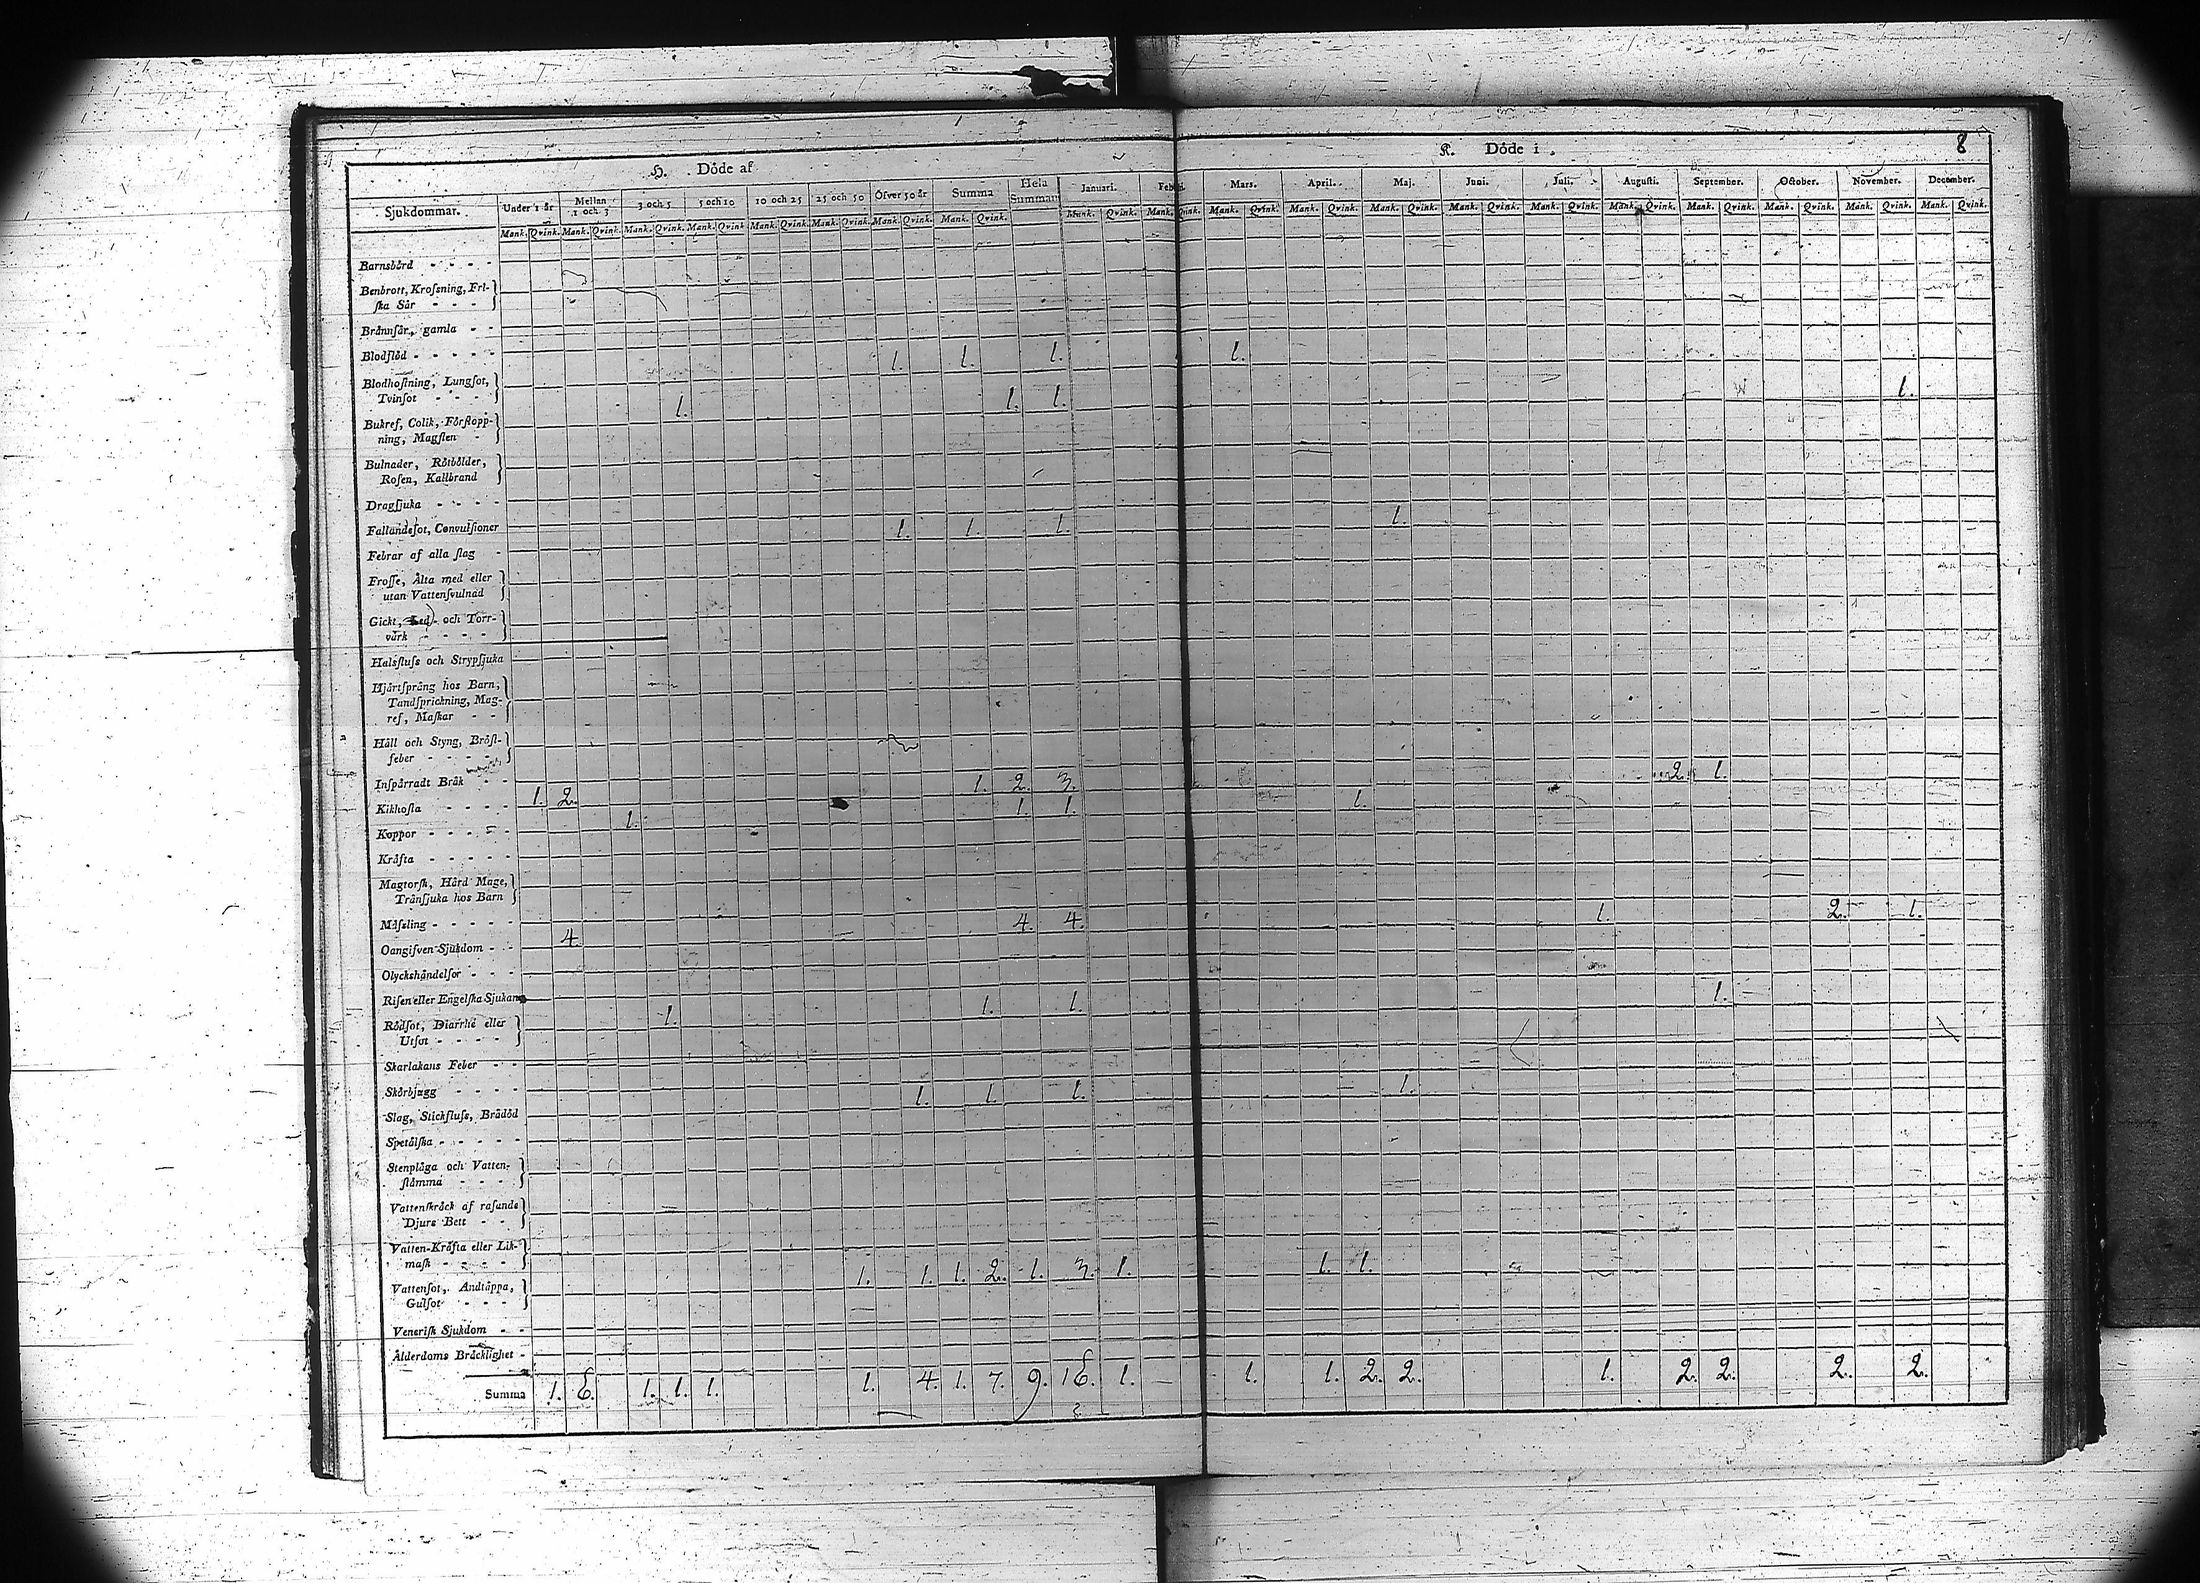 H. Döde af
K. Döde i
8
Sjukdommar. Under 1 år Mellan 1 och 3 3 och 5 5 och 10 10 och 25 25 och 50 Öfver 50 år Summa Hela Summan Januari. Mars. April. Maj. Juni. Juli. Augusti. September. October. November. December.
Mank. Qvink. Mank. Qvink. Mank. Qvink. Mank. Qvink. Mank. Qvink. Mank. Qvink. Mank. Qvink. Mank. Qvink. Mank. Qvink. Mank. Qvink. Mank. Qvink. Mank. Qvink. Mank. Qvink. Mank. Qvink. Mank. Qvink. Mank. Qvink. Mank. Qvink. Mank. Qvink. Mank. Qvink. Mank. Qvink.
Barnsbörd - - - -
Benbrott, Krosſning, Fri-
ſka Sår - - -
Brännſår, gamla - -
Blodflöd - - - - - 1. 1. 1. 1.
Blodhoſtning, Lungſot,
Tvinſot - - - - 1. 1. 1. 1.
Bukref, Colik, Förſtopp-
ning, Magſten -
Bulnader, Rötbölder,
Roſen, Kallbrand
Dragſjuka - - - -
Fallandeſot, Convulſioner 1. 1. 1 1.
Febrar af alla ſlag -
Froſſe, Älta med eller
utan Vattenſvulnad
Gickt, Led- och Torr-
värk - - - -
Halsfluſs och Strypſjuka
Hjärtſpräng hos Barn,
Tandſprickning, Mag-
ref, Maſkar - -
Håll och Styng, Bröſt-
feber - - - - -
Inſpärradt Bråk - - 1. 2. 3. 2. 1.
Kikhoſta - - - - 1. 2. 1. 1. 1.
Koppor - - - - - 1.
Kräfta - - - - -
Magtorſk, Hård Mage,
Tränſjuka hos Barn
Mäſsling - - - - - 4. 4. 4. 1. 2. 1.
Oangifven Sjukdom - -
Olyckshändelſor - - -
Riſen eller Engelſka Sjukan 1. 1. 1. 1.
Rödſot, Diarrhé eller
Utſot - - - -
Skarlakans Feber - -
Skörbjugg - - - 1. 1. 1. 1.
Slag, Stickfluſs, Brådöd
Spetälſka - - - - -
Stenplåga och Vatten-
ſtämma - - - -
Vattenſkräck af raſande
Djurs Bett - -
Vatten-Kräfta eller Lik-
maſk - - - - 1. 1. 1. 2. 1. 3. 1. 1. 1.
Vattenſot, Andtäppa,
Gulſot - - -
Veneriſk Sjukdom - -
Ålderdoms Bräcklighet -
Summa 1. 6. 1. 1. 1. 1. 4. 1. 7. 9. 16. 1. 1. 1. 2. 2. 1. 2. 2. 2. 2.